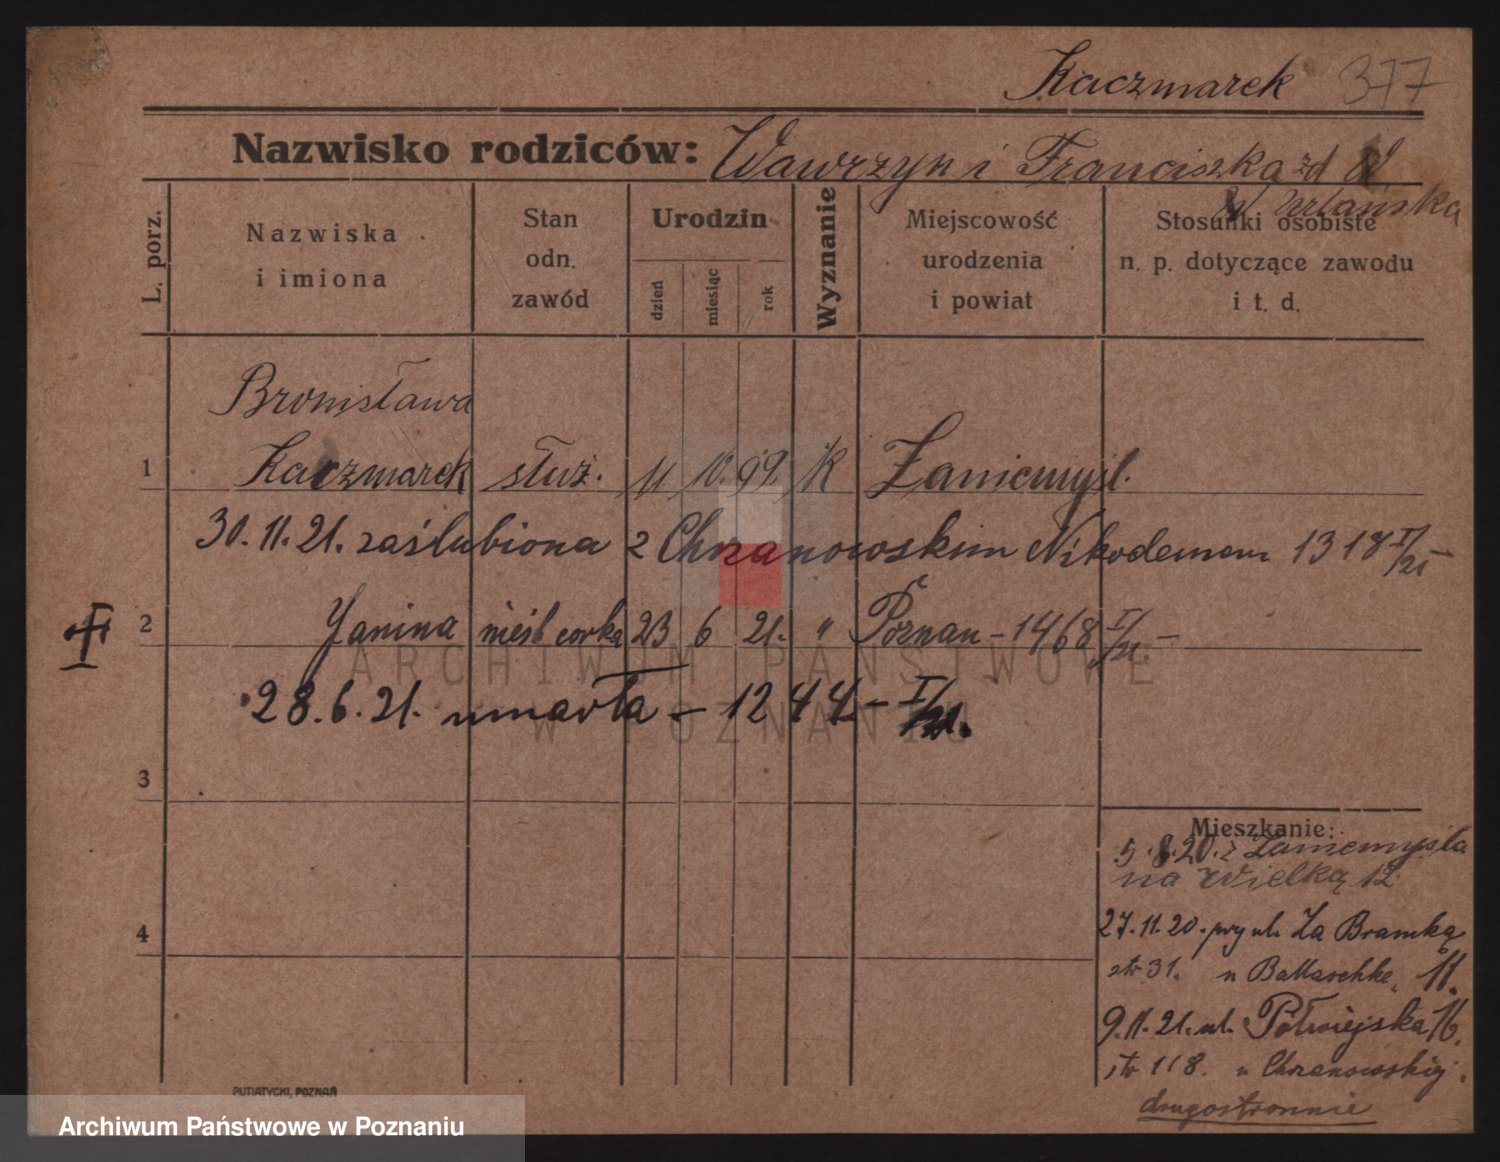 Kaczmarek 377
Nazwisko rodziców: Wawrzyn i Franciszka zd
L. porz.
Nazwiska
i imiona
Stan
odn.
zawód
Urodzin
dzień
miesiąc
rok
Wyznanie
Miejscowość
urodzenia
i powiat
Stosunki osobiste
n. p. dotyczące zawodu
i t. d.
Bronisława
1 Kaczmarek służ. 11 10. 99. K Zaniemyśl.
30. 11. 21. zaślubiona z Chrzanowskim Nikodemem 1318 I/21 –
2 Janina nieśl corka 23 6 21. " Poznan – 1468 I/21 –
28. 6. 21. umarła – 1244. – I/21.
3
4
Mieszkanie:
5. 8. 20. z Zaniemyśla
na Wielką 12
27. 11. 20. przy ul. Za Bramką
str 31. u Ballaschke. 11.
9. 11. 21. ul. Półwiejska 16.
str 118. u Chrzanowskiej.
drugostronnie
PUTIATYCKI, POZNAŃ
ARCHIWUM PAŃSTWOWE
W POZNANIU
Archiwum Państwowe w Poznaniu